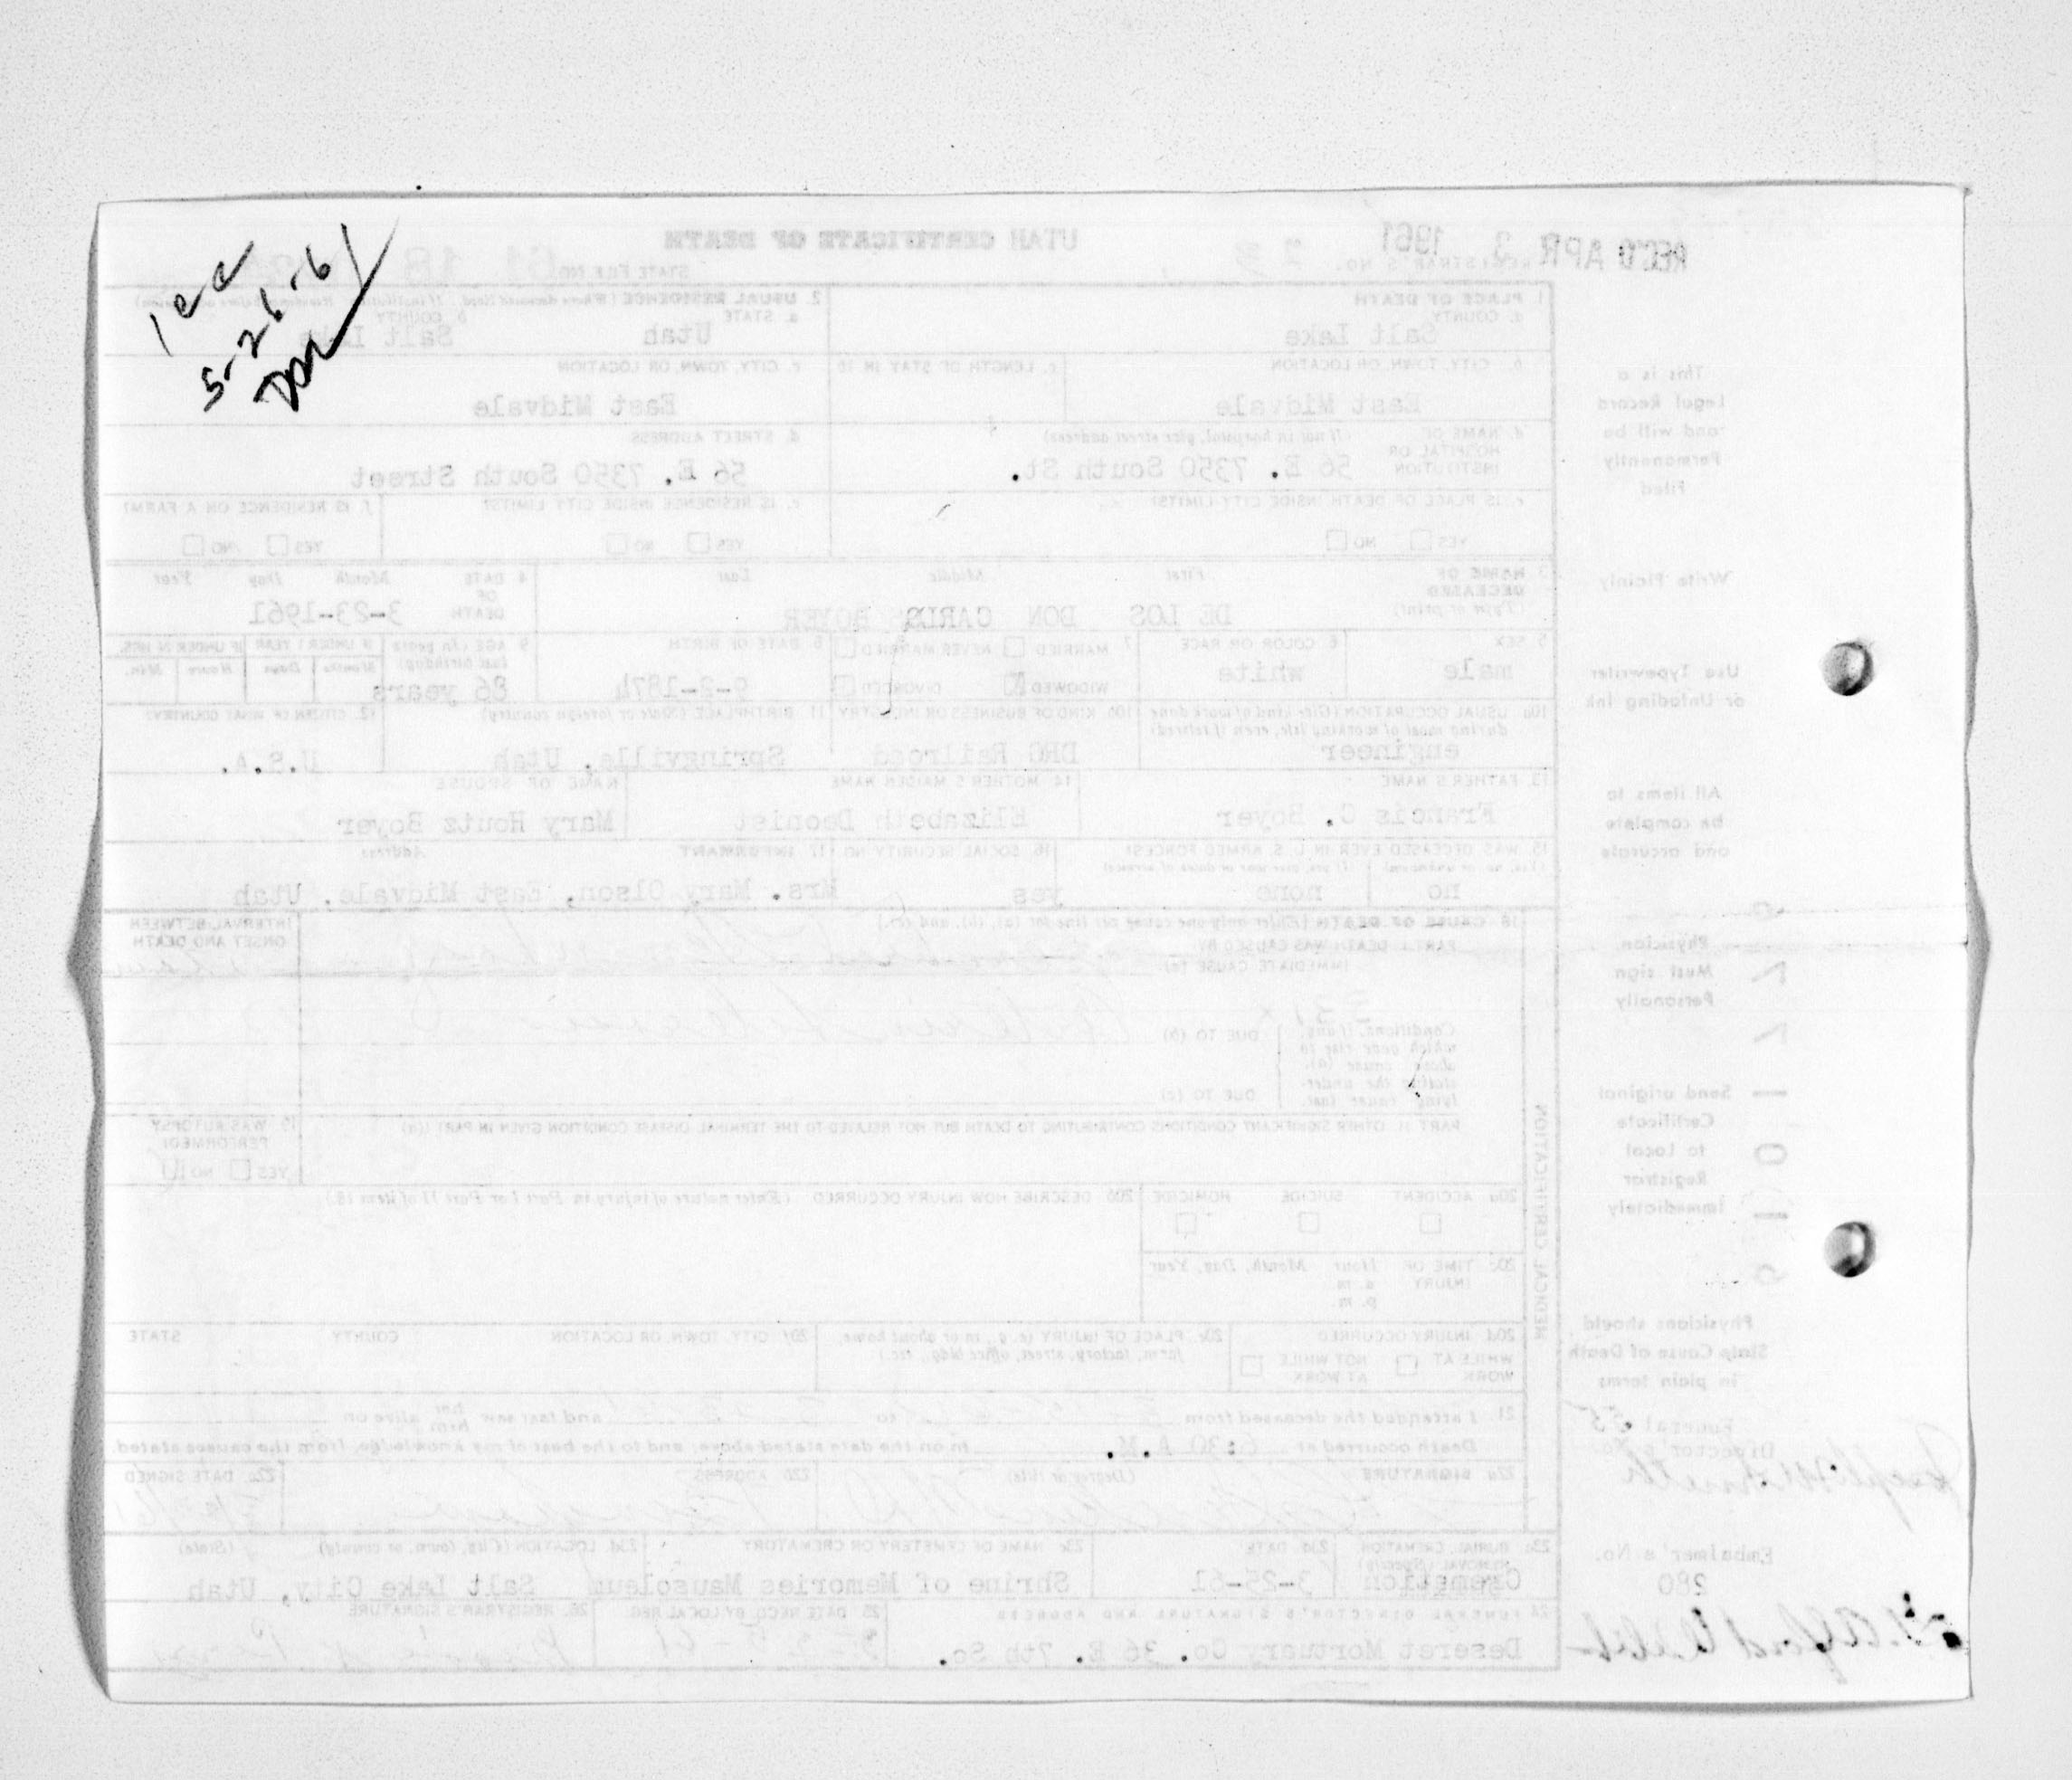 1cc
5-21-61
REC'D APR 3 1961
UTAH CERTIFICATE OF DEATH
REGISTRAR'S NO.
STATE FILE NO. 61 18
This is a Legal Record and will be Permanently Filed
Write Plainly
Use Typewriter or Unfading Ink
All items to be complete and accurate
Physician Must sign Personally
Send original Certificate to Local Registrar Immediately
Physicians should State Cause of Death in plain terms
Funeral Director's No.
Embalmer's No.
280
1. PLACE OF DEATH
a. COUNTY
Salt Lake
2. USUAL RESIDENCE (Where deceased lived. If institution: Residence before admission)
a. STATE
Utah
b. COUNTY
Salt Lake
b. CITY, TOWN, OR LOCATION
East Midvale
c. LENGTH OF STAY IN 1b
c. CITY, TOWN, OR LOCATION
East Midvale
d. NAME OF HOSPITAL OR INSTITUTION (If not in hospital, give street address)
56 E. 7350 South St.
d. STREET ADDRESS
56 E. 7350 South Street
e. IS PLACE OF DEATH INSIDE CITY LIMITS?
YES NO
e. IS RESIDENCE INSIDE CITY LIMITS?
YES NO
f. IS RESIDENCE ON A FARM?
YES NO
3. NAME OF DECEASED (Type or print)
First Middle Last
DE LOS DON CARLS BOYER
4. DATE OF DEATH
Month Day Year
3-23-1961
5. SEX
male
6. COLOR OR RACE
white
7. MARRIED NEVER MARRIED
WIDOWED DIVORCED
8. DATE OF BIRTH
9-2-1874
9. AGE (In years last birthday)
86 years
IF UNDER 1 YEAR IF UNDER 24 HRS.
Months Days Hours Min.
10a. USUAL OCCUPATION (Give kind of work done during most of working life, even if retired)
engineer
10b. KIND OF BUSINESS OR INDUSTRY
DRG Railroad
11. BIRTHPLACE (State or foreign country)
Springville, Utah
12. CITIZEN OF WHAT COUNTRY?
U.S.A.
13. FATHER'S NAME
Francis C. Boyer
14. MOTHER'S MAIDEN NAME
Elizabeth Deonist
NAME OF SPOUSE
Mary Houtz Boyer
15. WAS DECEASED EVER IN U. S. ARMED FORCES?
(Yes, no, or unknown) (If yes, give war or dates of service)
no none
16. SOCIAL SECURITY NO.
yes
17. INFORMANT Address
Mrs. Mary Olson, East Midvale, Utah
MEDICAL CERTIFICATION
18. CAUSE OF DEATH [Enter only one cause per line for (a), (b), and (c).]
PART I. DEATH WAS CAUSED BY:
IMMEDIATE CAUSE (a)
INTERVAL BETWEEN ONSET AND DEATH
Conditions, if any, which gave rise to above cause (a), stating the underlying cause last.
DUE TO (b)
DUE TO (c)
PART II. OTHER SIGNIFICANT CONDITIONS CONTRIBUTING TO DEATH BUT NOT RELATED TO THE TERMINAL DISEASE CONDITION GIVEN IN PART I (a)
19. WAS AUTOPSY PERFORMED?
YES NO
20a. ACCIDENT SUICIDE HOMICIDE
20b. DESCRIBE HOW INJURY OCCURRED (Enter nature of injury in Part I or Part II of item 18.)
20c. TIME OF INJURY Hour Month, Day, Year
a. m.
p. m.
20d. INJURY OCCURRED
WHILE AT WORK NOT WHILE AT WORK
20e. PLACE OF INJURY (e.g., in or about home, farm, factory, street, office bldg., etc.)
20f. CITY, TOWN, OR LOCATION COUNTY STATE
21. I attended the deceased from to and last saw her him alive on
Death occurred at 6:30 A.M. m on the date stated above; and to the best of my knowledge, from the causes stated.
22a. SIGNATURE (Degree or title)
22b. ADDRESS
22c. DATE SIGNED
23a. BURIAL, CREMATION, REMOVAL (Specify)
Cremation
23b. DATE
3-25-61
23c. NAME OF CEMETERY OR CREMATORY
Shrine of Memories Mausoleum
23d. LOCATION (City, town, or county) (State)
Salt Lake City, Utah
24. FUNERAL DIRECTOR'S SIGNATURE AND ADDRESS
Deseret Mortuary Co. 36 E. 7th So.
25. DATE RECD. BY LOCAL REG.
26. REGISTRAR'S SIGNATURE